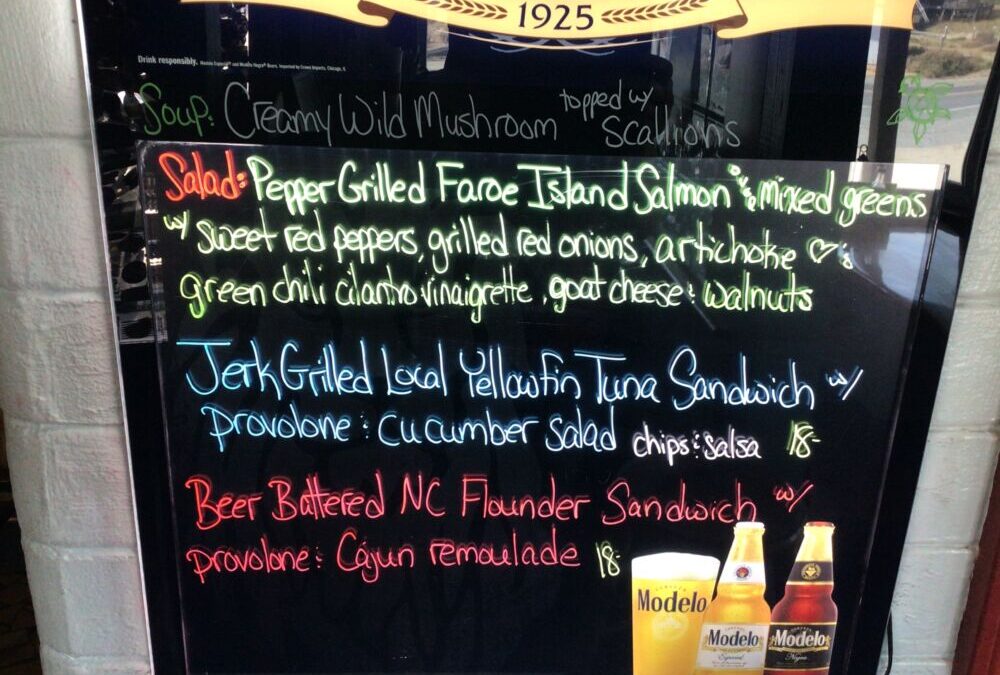 1925
Drink responsibly.
Soup: Creamy Wild Mushroom topped w/ Scallions
Salad: Pepper Grilled Faroe Island Salmon & mixed greens
w/ sweet red peppers, grilled red onions, artichoke ♡'s
green chili cilantro vinaigrette, goat cheese & walnuts
Jerk Grilled Local Yellowfin Tuna Sandwich w/
provolone & cucumber salad chips & salsa 18-
Beer Battered NC Flounder Sandwich w/
provolone & Cajun remoulade 18-
Modelo
Modelo
Especial
Modelo
Negra